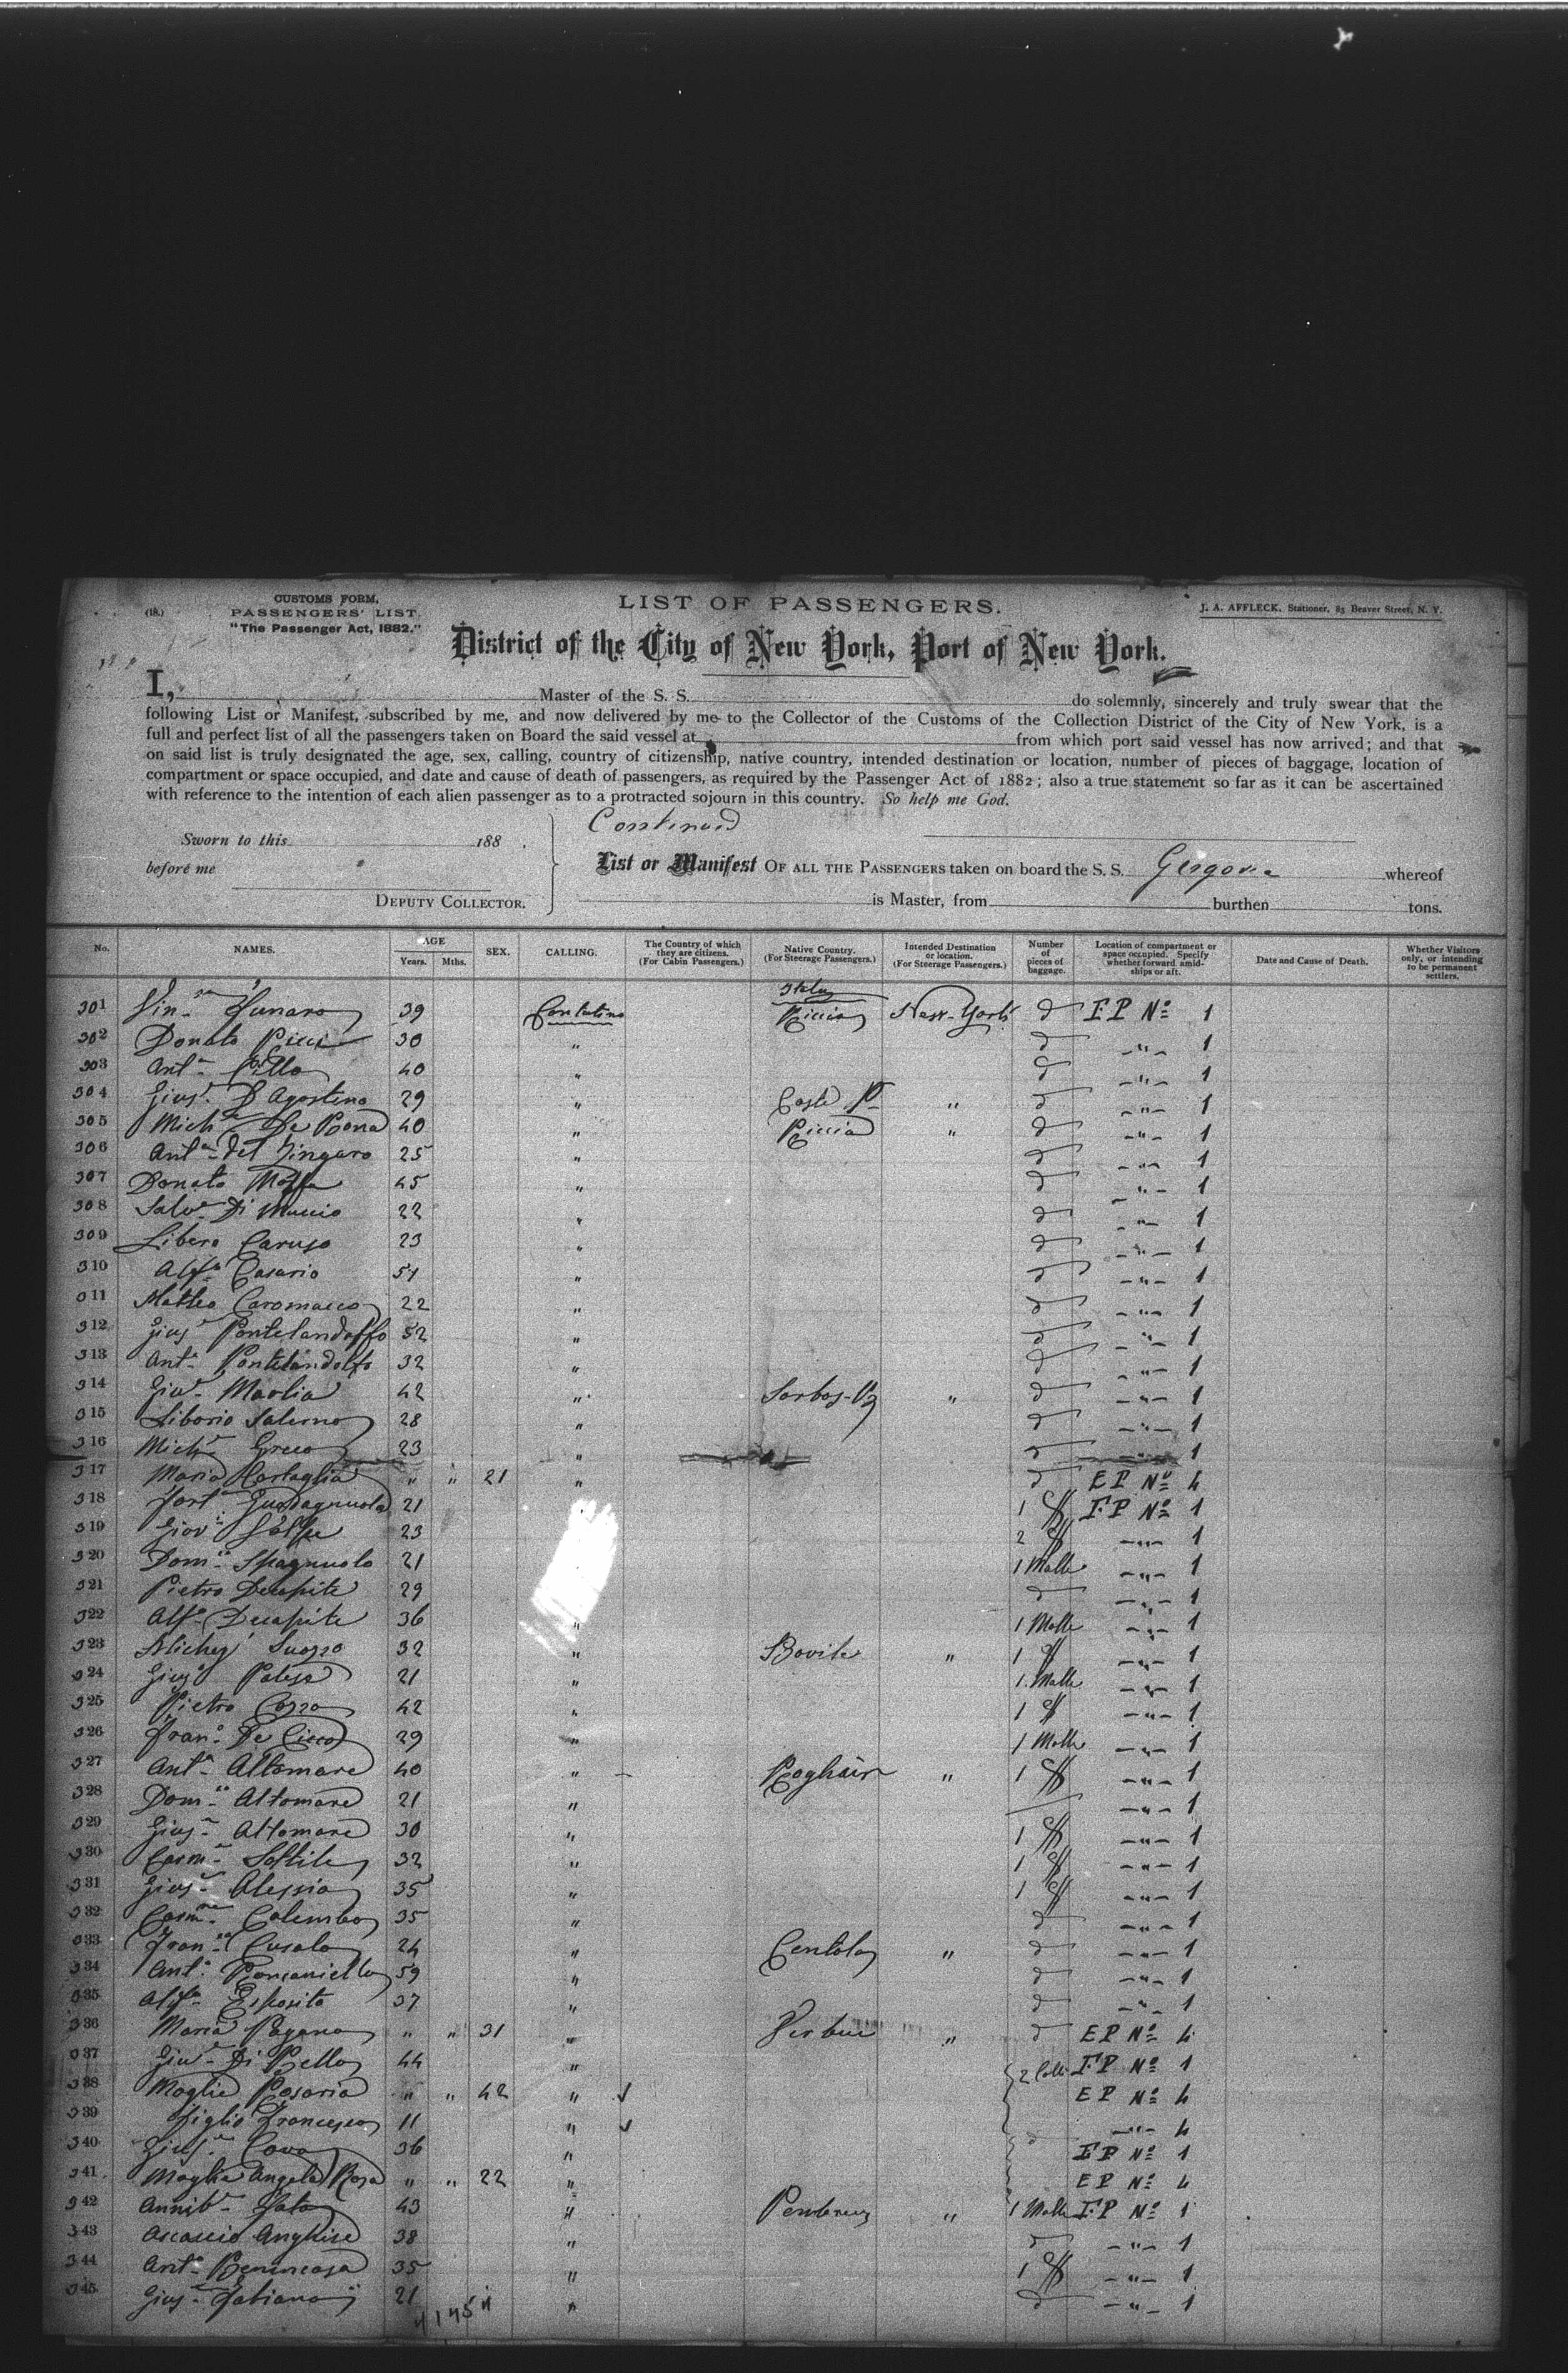 (18.)
CUSTOMS FORM,
PASSENGERS' LIST.
"The Passenger Act, 1882."
LIST OF PASSENGERS.
J. A. AFFLECK, Stationer, 83 Beaver Street, N. Y.
District of the City of New York, Port of New York.
I, Master of the S. S. do solemnly, sincerely and truly swear that the
following List or Manifest, subscribed by me, and now delivered by me to the Collector of the Customs of the Collection District of the City of New York, is a
full and perfect list of all the passengers taken on Board the said vessel at from which port said vessel has now arrived; and that
on said list is truly designated the age, sex, calling, country of citizenship, native country, intended destination or location, number of pieces of baggage, location of
compartment or space occupied, and date and cause of death of passengers, as required by the Passenger Act of 1882; also a true statement so far as it can be ascertained
with reference to the intention of each alien passenger as to a protracted sojourn in this country. So help me God.
Continued
Sworn to this 188 .
before me
DEPUTY COLLECTOR.
List or Manifest OF ALL THE PASSENGERS taken on board the S. S. Gergovia whereof
is Master, from burthen tons.
No. NAMES. AGE Years. Mths. SEX. CALLING. The Country of which they are citizens. (For Cabin Passengers.) Native Country. (For Steerage Passengers.) Intended Destination or location. (For Steerage Passengers.) Number of pieces of baggage. Location of compartment or space occupied. Specify whether forward amidships or aft. Date and Cause of Death. Whether Visitors only, or intending to be permanent settlers.
Italy
301 Funaro 39 Contadino Riccia New-York F P No 1
302 Donato Ricci 30 " -"- 1
303 Anto Cillo 40 " -"- 1
304 Gius. D'Agostino 29 " Castel P " -"- 1
305 Mich De Rona 40 " Riccia " -"- 1
306 Anto del Zingaro 25 " -"- 1
307 Donato Moffa 45 " -"- 1
308 Salve Di Muccio 22 " -"- 1
309 Libero Caruso 23 " -"- 1
310 Alfo Casario 51 " -"- 1
311 Matteo Caromacco 22 " -"- 1
312 Gius Pontelandolfo 52 " -"- 1
313 Anto Pontelandolfo 32 " -"- 1
314 Giu. Maolia 42 " " -"- 1
315 Liborio Salerno 28 " -"- 1
316 Mich Greco 23 " -"- 1
317 Maria Cartaglia " " 21 " E P No 4
318 Fort Guadagnuolo 21 1 F P No 1
319 Giov 23 2 -"- 1
320 Domco Spagnuolo 21 1 Malle -"- 1
321 Pietro Decapite 29 -"- 1
322 Alfo Decapite 36 " 1 Malle -"- 1
323 Suozzo 32 " Bovile " 1 -"- 1
324 Gius 21 " 1 Malle -"- 1
325 Pietro Cozzo 42 " 1 -"- 1
326 Frano De Cicco 29 " 1 Malle -"- 1
327 Anto Altomare 40 " " 1 -"- 1
328 Domco Altomare 21 " -"- 1
329 Gius Altomare 30 " 1 -"- 1
330 Carm Sottile 32 " 1 -"- 1
331 Gius Alessio 35 " 1 -"- 1
332 Carmne Colimbo 35 " -"- 1
333 Franco Cusalo 24 " Centola " -"- 1
334 Anto Romaniello 59 " -"- 1
335 Alfo Esposito 37 " -"- 1
336 Maria Pagano " " 31 " " E P No 4
337 Giu. Di Bello 44 " 2 Colli F P No 1
338 Moglie Rosaria " " 42 " E P No 4
339 Figlio Francesco 11 " -"- 4
340 Gius. Cava 36 " F P No 1
341 Moglie Angela Rosa " " 22 " E P No 4
342 Annib Fato 43 " " 1 Malle F P No 1
343 Ascanio Anghise 38 " -"- 1
344 Anto Benincasa 35 " 1 -"- 1
345 Gius Fabiano 21 " -"- 1